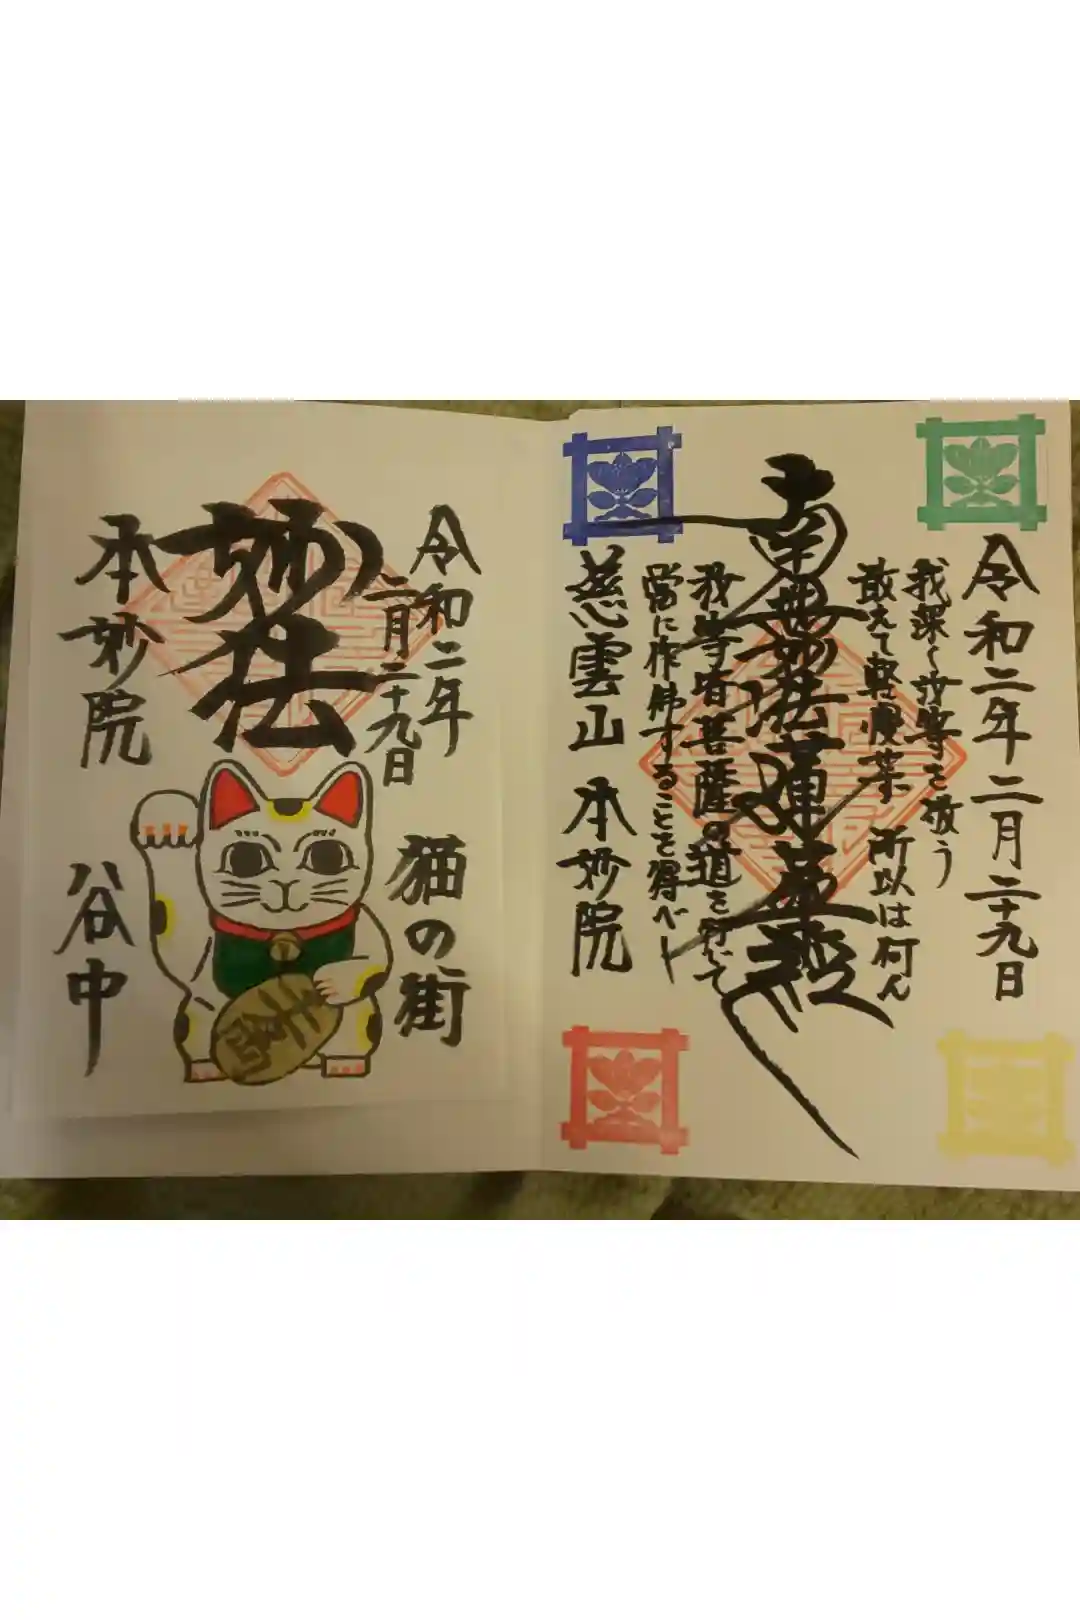 令和二年二月二十九日
我深く汝等を敬う
敢えて軽慢
所以は何ん
南無妙法蓮華経
汝等皆菩薩の道を行じて
当に作佛することを得べし
慈雲山 本妙院
令和二年
二月二十九日
猫の街
妙法
本妙院
谷中